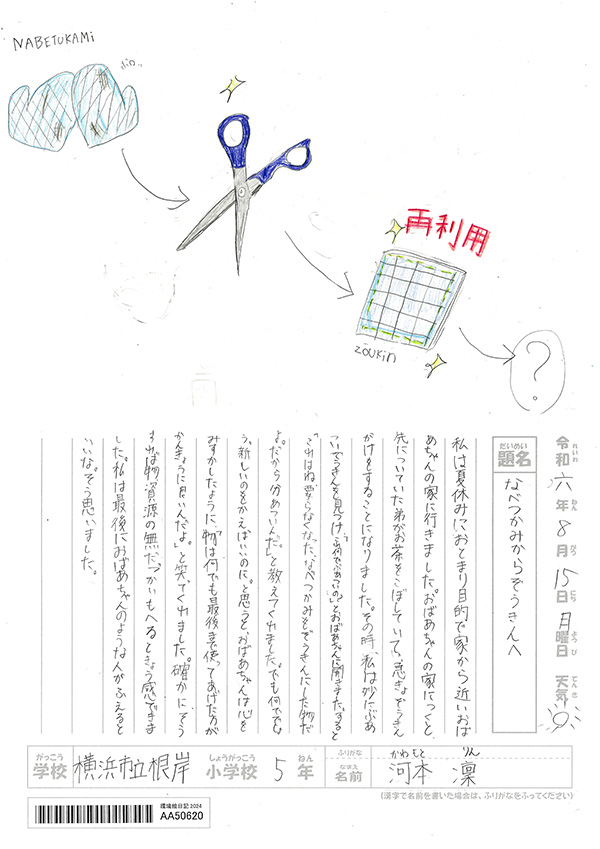 NABETUKAMi
ボロッ
再利用
zōukin
?
令和六年8月15日月曜日 天気
れいわ ねん がつ にち ようび てんき
だいめい
題名 なべつかみからぞうきんへ
私は夏休みに、おとまり目的で家から近いおば
あちゃんの家に行きました。おばあちゃんの家につくと、
先についていた弟がお茶をこぼしていて、急きょぞうきん
がけをすることになりました。その時、私は妙にぶあ
ついぞうきんを見つけ、「何であついの。」とおばあちゃんに聞きました。すると
「これはね要らなくなった、なべつかみをぞうきんにした物だ
よ。だから分あついんだ。」と教えてくれました。でも何でで
う、新しいのをかえばいいのに。と思うと、おばあちゃんは心を
みすかしたように、「物は何でも最後まで使ってあげた方が
かんきょうに良いんだよ。」と笑てくれました。確かにそう
すれば物資源の無だづかいもへるときょう感できま
した。私は最後におばあちゃんのような人がふえると
いいな。そう思いました。
がっこう しょうがっこう ねん ふりがな かわもと りん
学校 横浜市立根岸 小学校 5年 なまえ 名前 河本 凜
(漢字で名前を書いた場合は、ふりがなをふってください)
環境絵日記 2024
AA50620